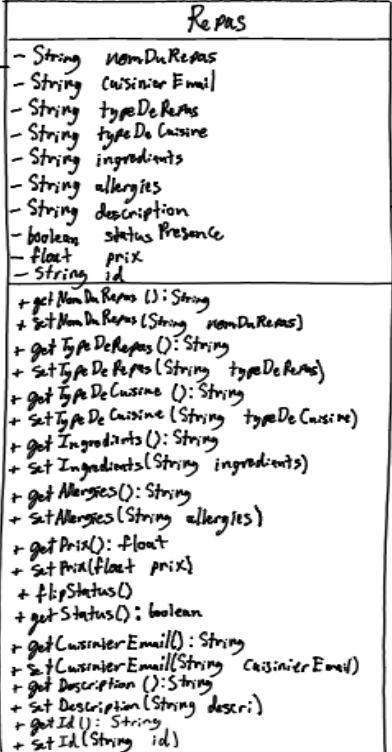 Repas
- String nomDuRepas
- String cuisinierEmail
- String typeDeRepas
- String typeDeCuisine
- String ingredients
- String allergies
- String description
- boolean statusPresence
- float prix
- String id
+ getNomDuRepas (): String
+ setNomDuRepas (String nomDuRepas)
+ getTypeDeRepas (): String
+ setTypeDeRepas (String typeDeRepas)
+ getTypeDeCuisine (): String
+ setTypeDeCuisine (String typeDeCuisine)
+ getIngredients (): String
+ setIngredients (String ingredients)
+ getAllergies(): String
+ setAllergies (String allergies)
+ getPrix(): float
+ setPrix(float prix)
+ flipStatus()
+ getStatus(): boolean
+ getCuisinierEmail(): String
+ setCuisinierEmail(String cuisinierEmail)
+ getDescription (): String
+ setDescription (String descri)
+ getId(): String
+ setId(String id)